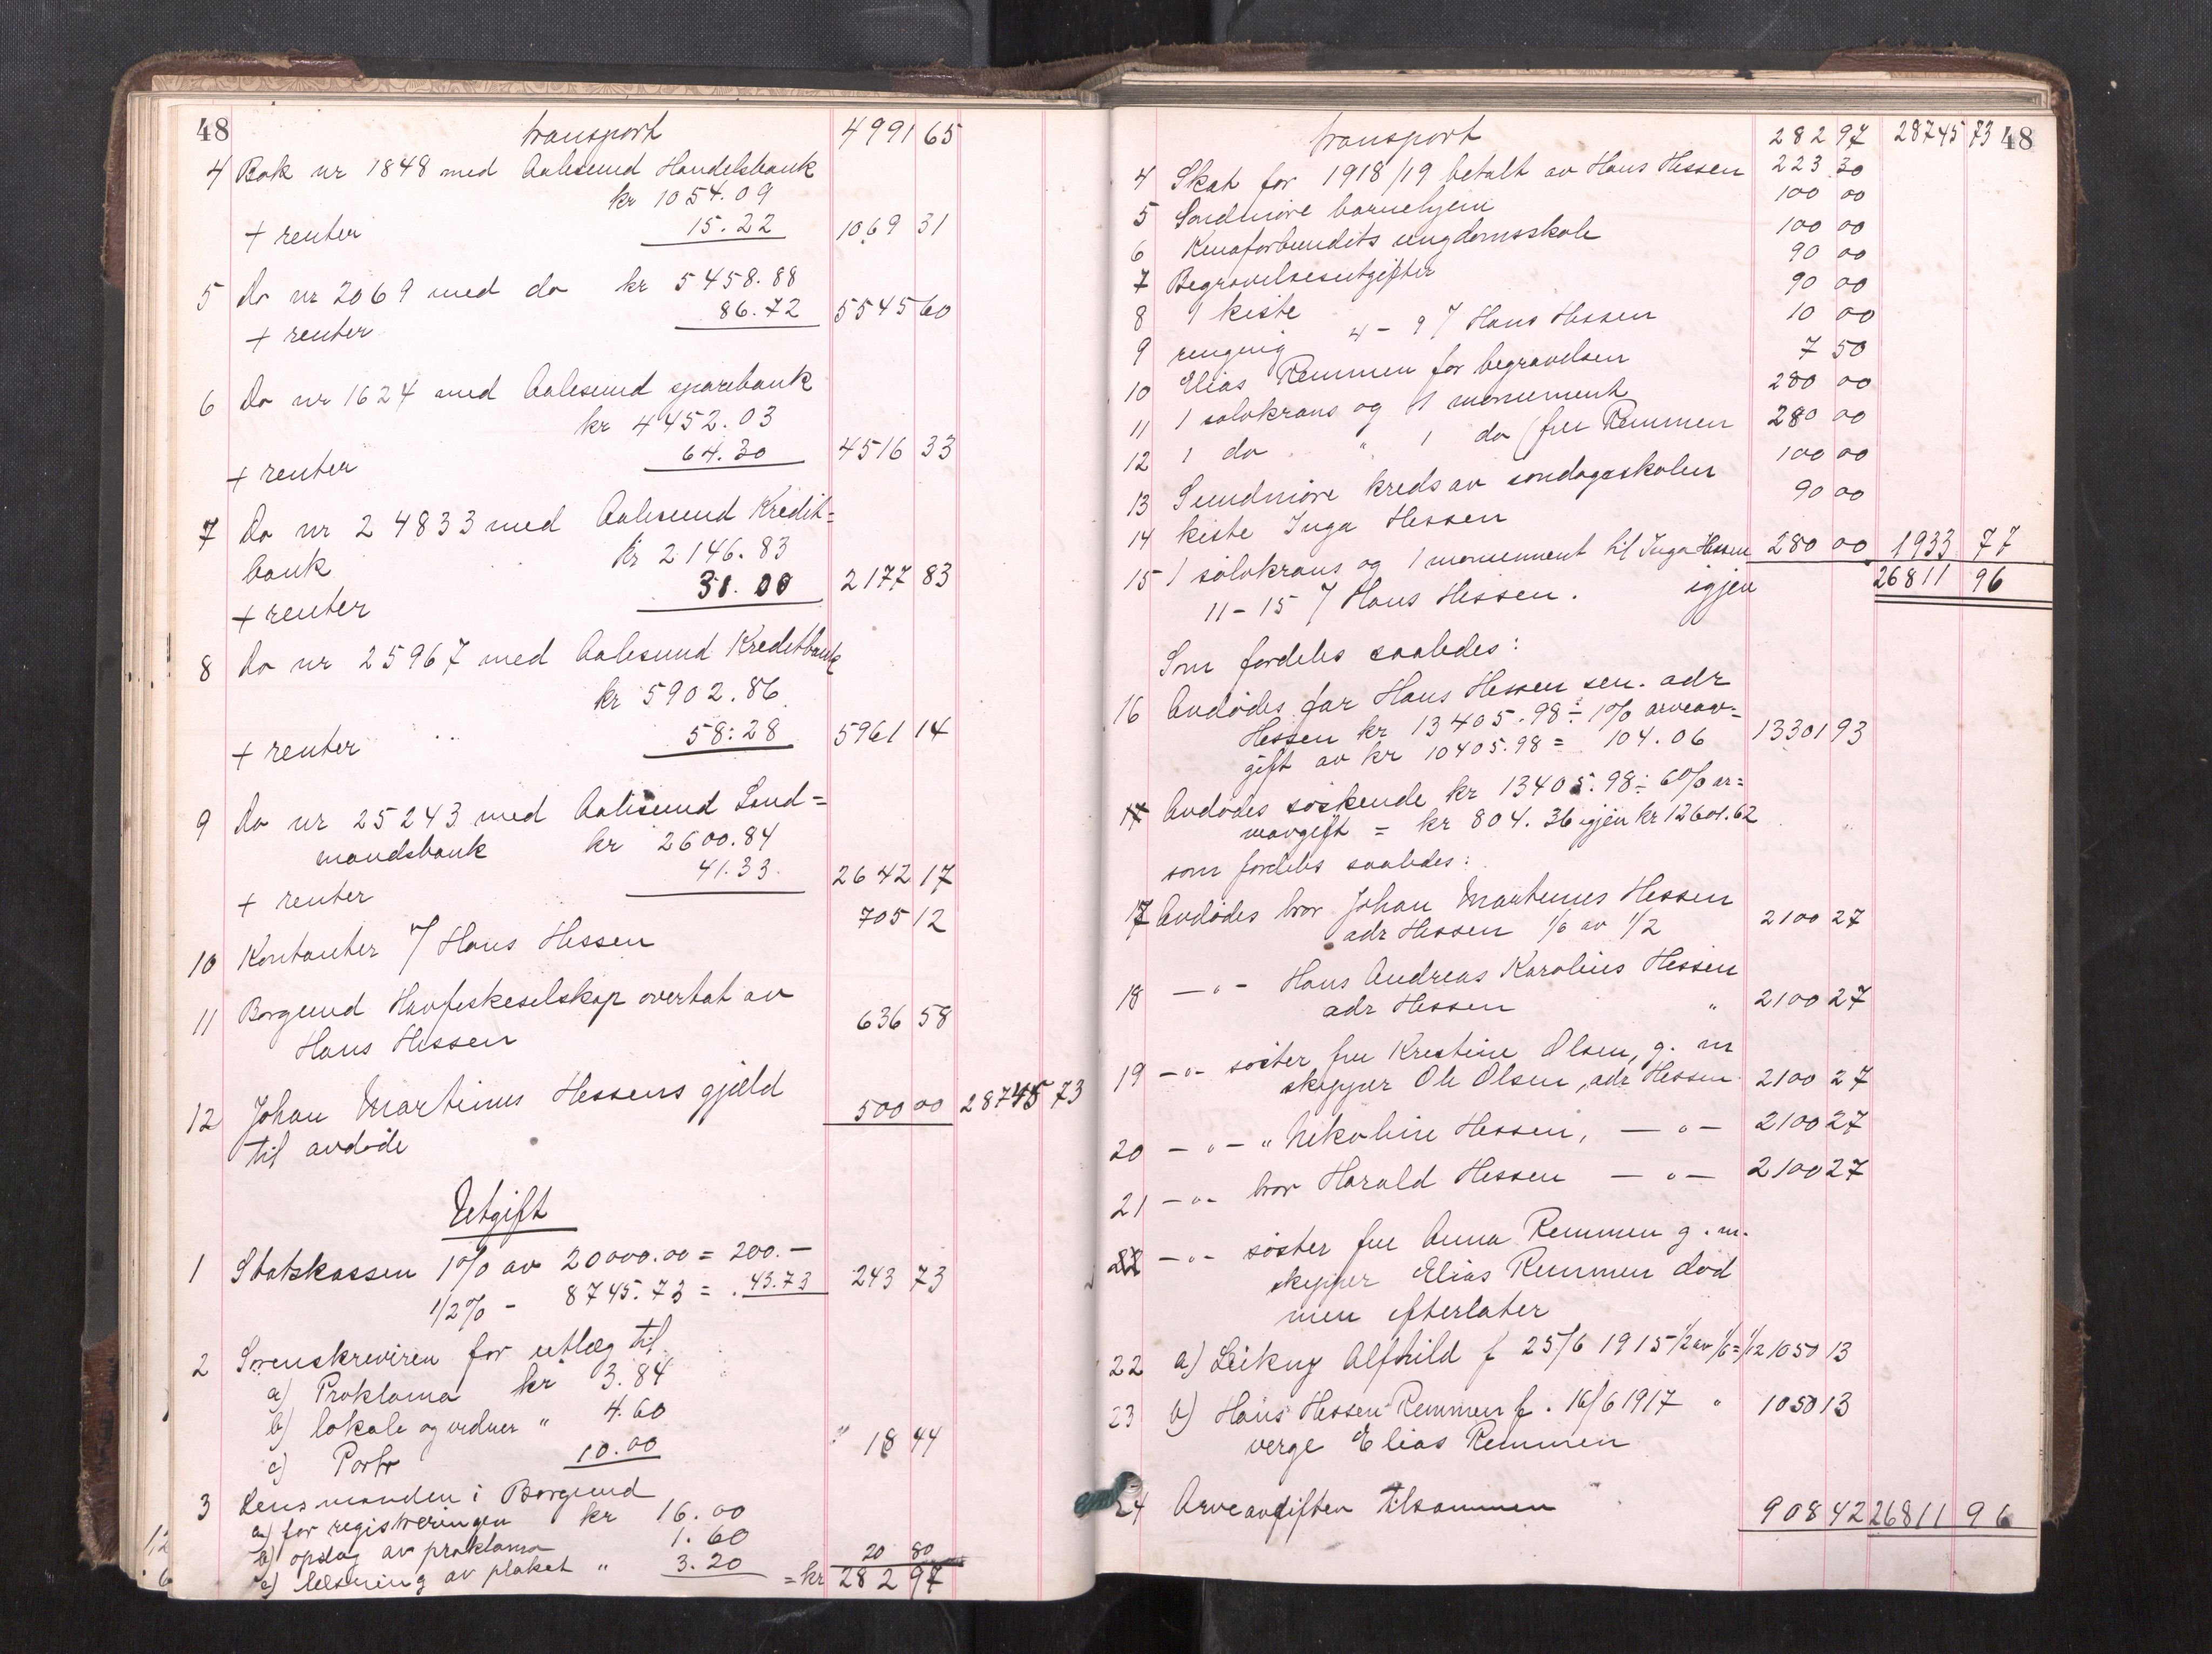 48 transport 4991 65
4 Bok nr 1848 med Aalesund Handelsbank
kr 1054.09
+ renter 15.22 1069 31
5 Do nr 2069 med do kr 5458.88
+ renter 86.72 5545 60
6 Do nr 1624 med Aalesund sparebank
kr 4452.03
+ renter 64.30 4516 33
7 Do nr 24833 med Aalesund Kredit=
bank kr 2146.83
+ renter 31.00 2177 83
8 Do nr 25967 med Aalesund Kreditbank
kr 5902.86
+ renter 58:28 5961 14
9 Do nr 25243 med Aalesund Land=
mandsbank kr 2600.84
+ renter 41.33 2642 17
10 Kontanter / Hans Hessen 705 12
11 Borgund Havfiskeselskap overtat av
Hans Hessen 636 58
12 Johan Martinus Hessens gjæld
til avdøde 500 00 28745 73
Utgift
1 Statskassen 1% av 20000.00 = 200.-
1/2% - 8745.73 = 43.73 243 73
2 Sorenskriveren for utlæg til
a) Proklama kr 3.84
b) lokale og vidner " 4.60
c) Porto 10.00 18 44
3 Lensmanden i Borgund
a) for registreringen kr 16.00
b) opslag av proklama 1.60
c) læsning av plakat " 3.20 20 80
= kr 282 97
transport 282 97 28745 73 48
4 Skat for 1918/19 betalt av Hans Hessen 223 30
5 Søndmøre barnehjem 100 00
6 Kinaforbundets ungdomsskole 100 00
7 Begravelsesutgifter 90 00
8 1 kiste 90 00
9 ringing 4 - 9 / Hans Hessen 10 00
10 Elias Remmen for begravelsen 7 50
11 1 sølvkrans og 1 monument 280 00
12 1 do " 1 do (fru Remmen 280 00
13 Sundmøre kreds av søndagsskolen 100 00
14 kiste Inga Hessen 90 00
15 1 sølvkrans og 1 monument til Inga Hessen 280 00 1933 77
11-15 / Hans Hessen. igjen 26811 96
Som fordeles saaledes:
16 Avdødes far Hans Hessen sen. adr
Hessen kr 13405.98 ÷ 1% arveav=
gift av kr 10405.98 = 104.06 13301 93
17 Avdødes søskende kr 13405.98 ÷ 6% ar=
veavgift = kr 804.36 igjen kr 12601.62
som fordeles saaledes:
17 Avdødes bror Johan Martinus Hessen
adr Hessen 1/6 av 1/2 2100 27
18 -"- Hans Andreas Karolius Hessen
adr Hessen " 2100 27
19 -"- søster fru Kristine Olsen, g. m
skipper Ole Olsen, adr Hessen 2100 27
20 -"- " Nikoline Hessen, -"- 2100 27
21 -"- bror Harald Hessen -"- 2100 27
22 -"- søster fru Anna Remmen g. m.
skipper Elias Remmen død
men efterlater
22 a) Leikny Alfhild f 25/6 1915 1/2 av 1/6 = 1/12 1050 13
23 b) Hans Hessen Remmen f. 16/6 1917 " 1050 13
verge Elias Remmen
24 Arveavgiften tilsammen 908 42 26811 96